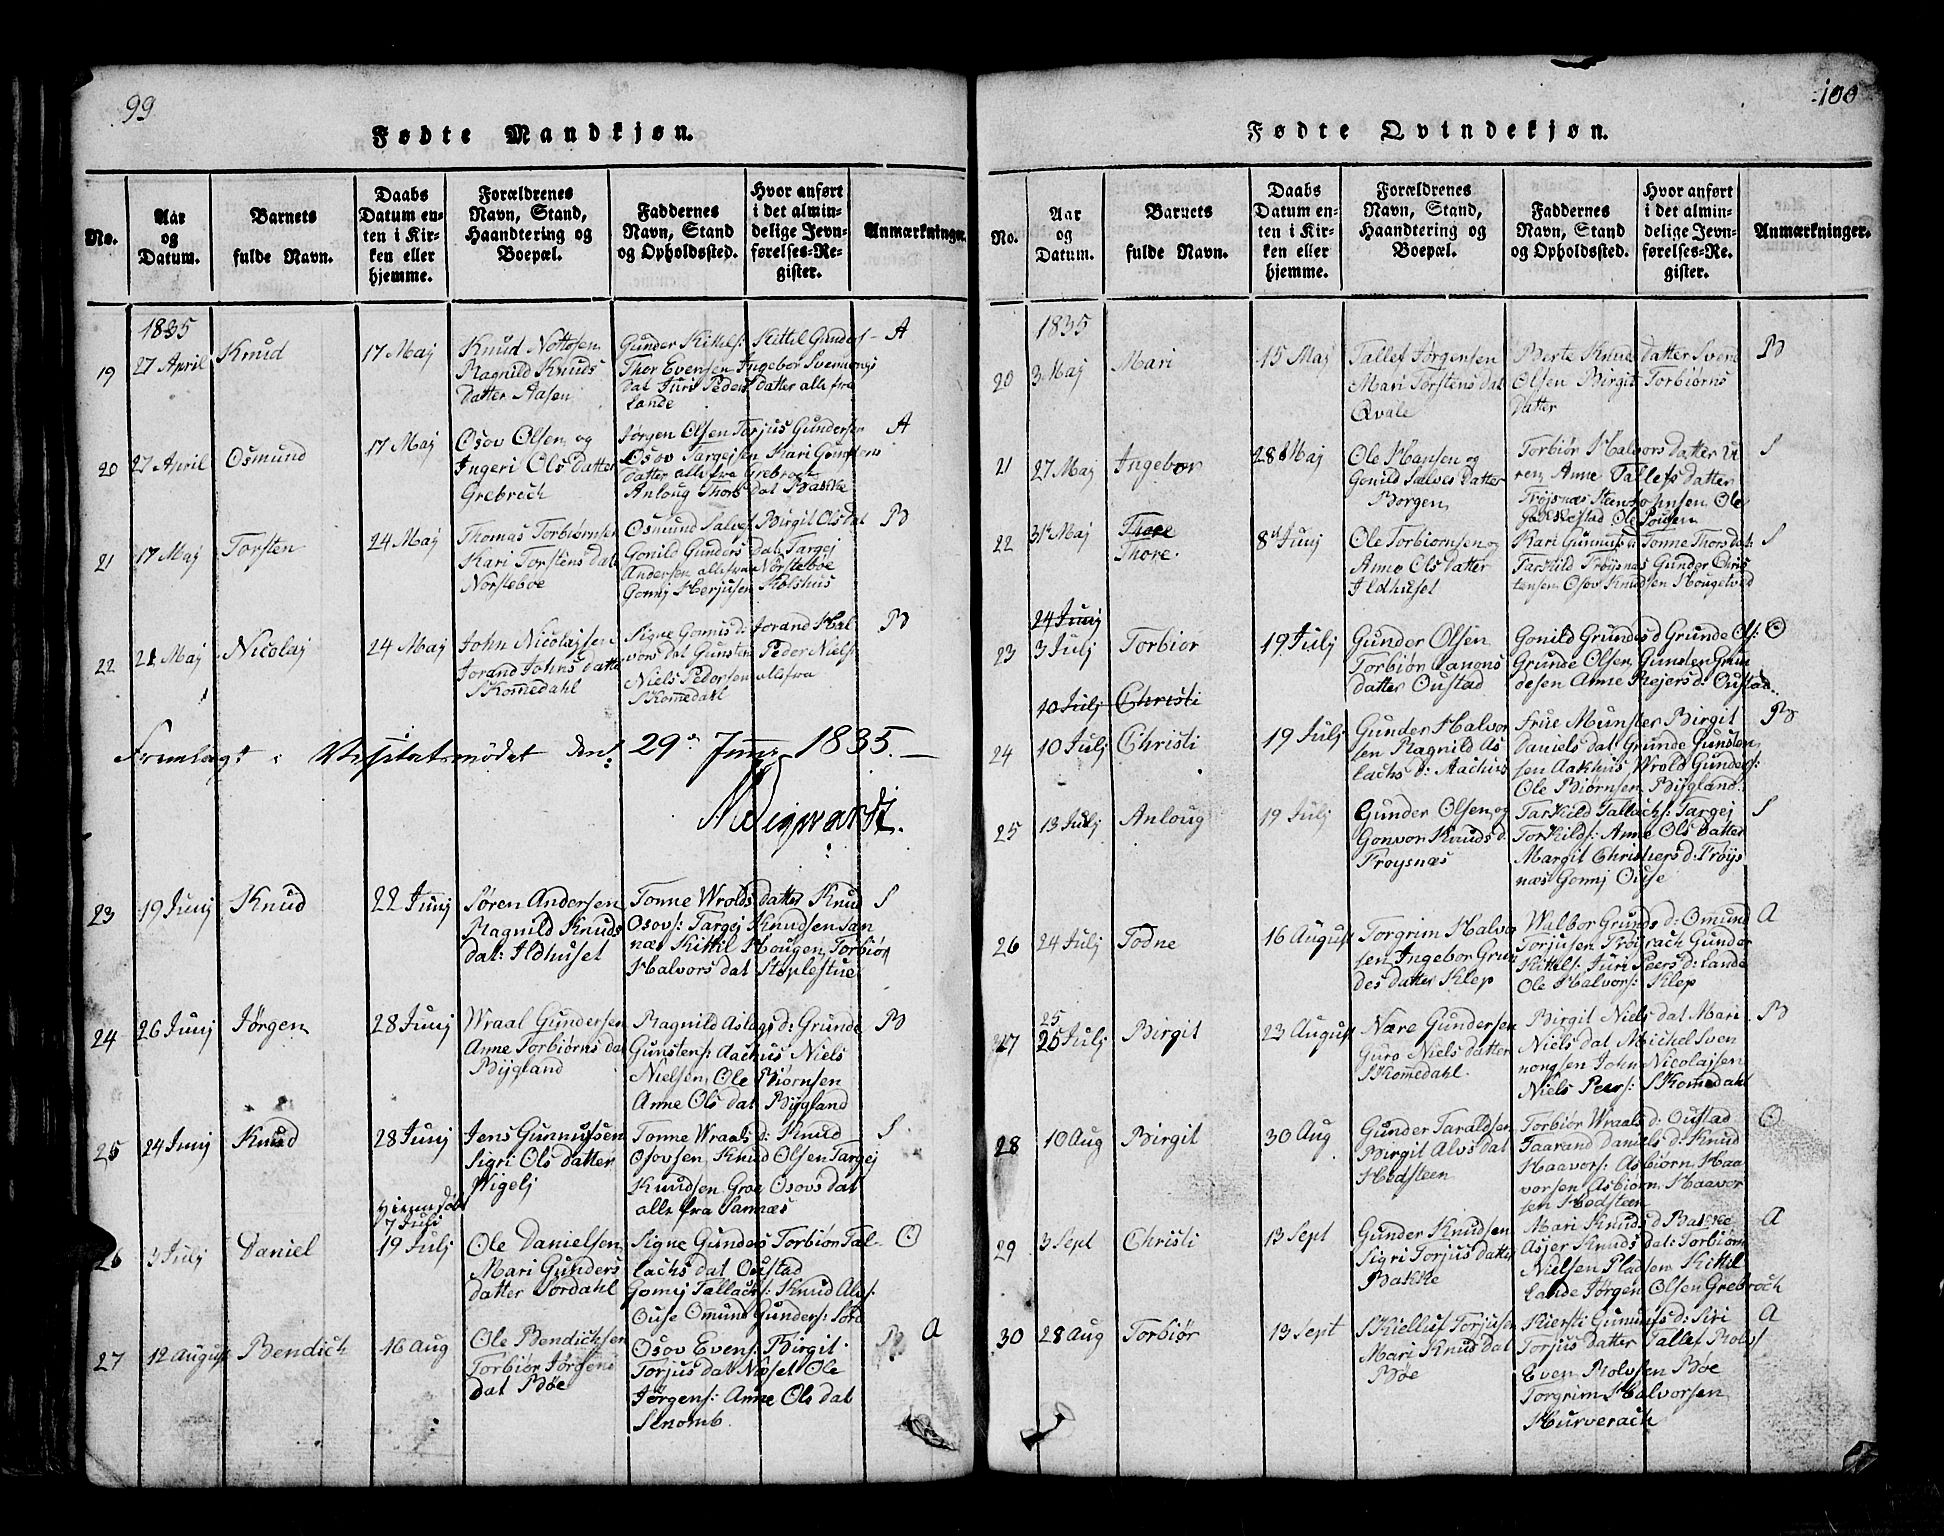 99
Fødte Mandkjøn.
No.
Aar
og
Datum.
Barnets
fulde Navn.
Daabs
Datum en-
ten i Kir-
ken eller
hjemme.
Forældrenes
Navn, Stand,
Haandtering og
Boepæl.
Faddernes
Navn, Stand
og Opholdssted.
Hvor anført
i det almin-
delige Jevn-
førelses-Re-
gister.
Anmærkninger.
1835
19
27 April
Knud
17 Maj
Knud Nottosen
Ragnild Knuds
datter Aasen
Gunder Kittels: Kittil Gundes
Thor Evensen Ingebor Svennungs
dat Juri Peders datter alle fra
Lande
A
20
27 April
Osmund
17 Maj
Osov Olsen og
Ingeri Ols datter
Grebroch
Jørgen Olsen Torjus Gundersen
Osov Targejsen Kari Gunders
datter alle fra Grebroch
Anloug Thors dat Bakke
A
21
17 Maj
Torsten
24 Maj
Thomas Torbiørnsen
Kari Torstens dat
Norsteboe
Osmund Salves Birgit Ols dat
Gonild Gunders dat Targej
Andersen alle fra Norsteboe
Gonnj Herjusen Holshuus
B
22
21 Maj
Nicolaj
24 Maj
John Nicolajsen
Jorand Johns datte
Skomedahl
Signe Gonnis d: Jorand Hal
vors dat Gunsten Peder Niels
Niels Pedersen alle fra
Skomedahl
B
Fremlagt i Visitatsmødet den 29de Juni 1835.
23
19 Junj
Knud
22 Junj
Søren Andersen
Ragnild Knuds
dat: Ildhuset
Tonne Wrolds datter Knud
Osovs: Targej Knudsen San
næs Kittil Hougen Torbiør
Halvors dat Stoplestue
S
24
26 Junj
Jørgen
28 Junj
Wraal Gundersen
Anne Torbiørns dat
Bygland
Ragnild Aslags d: Grunde
Gunstens: Aachus Niels
Nielsen, Ole Biørnsen
Anne Ols dat Bygland
B
25
24 Junj
Knud
28 Junj
Jens Gunnufsen
Sigri Ols datter
Wigelj
Tonne Wraals d: Knud
Osovsen Knud Olsen Targej
Knudsen Groe Osovs dat
alle fra Sannæs
S
26
3 Julj
Daniel
7 Juli
19 Julj
Ole Danielsen
Mari Gunders
datter Sordahl
Signe Gunders Torbiør Tal-
lachs dat Oustad
Gonnj Tallachs: Knud Alvs:
Ouse Omund Gunders: Sord
O
27
12 August
Bendich
16 Aug
Ole Bendichsen
Torbiør Jørgens
dat Bøe
Osov Evens: Birgit
Torjus dat Næset Ole
Jørgens: Anne Ols dat
Senomb
B A
100
Fødte Qvindekjøn.
No.
Aar
og
Datum.
Barnets
fulde Navn.
Daabs
Datum en-
ten i Kir-
ken eller
hjemme.
Forældrenes
Navn, Stand,
Haandtering og
Boepæl.
Faddernes
Navn, Stand
og Opholdssted.
Hvor anført
i det almin-
delige Jevn-
førelses-Re-
gister.
Anmærkninger.
1835
20
3 Maj
Mari
15 Maj
Tallef Jørgensen
Mari Torstens dat
Qvale
Berte Knue datter Sven
Olsen Birgit Torbiørns
datter
B
21
27 Maj
Ingebor
28 Maj
Ole Hansen og
Gonild Salves datter
Borgen
Torbiør Halvors datter U
ren, Anne Tallefs datter
Frøysnæs Sten Johnsen Ole
S
22
31 Maj
Thore
Thore.
8de Junj
Ole Torbiornsen og
Anne Ols datter
Ildhuset
Kari Gunnufs d: Tonne Thors dat:
Tarkild Frøysnas Gunder Chris
tensen Osov Knudsen Hougetved
S
24 Junj
23
3 Julj
Torbior
19 Julj
Gunder Olsen
Torbiør Canons
datter Oustad
Gonild Grundes d Grunde Ols:
Grunde Olsen, Gunsten Grun
desen Anne Rejers d: Oustad.
O
10 Julj
Christi
24
10 Julj
Christi
19 Julj
Gunder Halvor
sen Ragnild As
lachs d: Aachus
Frue Munster Birgit
Daniels dat Grunde Gunsten
sen Aakhus Wrold Gunders:
Ole Biørnsen, Bygland.
B
25
13 Julj
Anloug
19 Julj
Gunder Olsen og
Gonvor Knuds d:
Frøysnæs
Tarkild Tallachs: Targej
Torkilds: Anne Ols datter
Margit Christiers d: Frøys
næs Gonnj Ouse
S
26
24 Julj
Todne
16 August
Torgrim Halvo
sen Ingebor Grun
des datter Klep
Walbor Grunds d: Omund
Torjusen Frøisrach Gunder
Kittels: Juri Peers d: Lande
Ole Halvors: Klep
A
27
25
25 Julj
Birgit
23 August
Nære Gundersen
Guro Niels datter
Skomedahl.
Birgit Niels dat Mari
Niels dat Michel Sven
nongsen John Nicolajsen
Niels Peers: Skomedahl
B
28
10 Aug
Birgit
30 Aug
Gunder Taraldsen
Birgit Alvs dat
Hodsteen
Torbiør Wraals d: Oustad
Taarand Daniels d: Knud
Haavors: Asbiørn Haa
vorsen Asbiørn Haavor
sen Hodsteen
O
29
3 Sept
Christi
13 Sept
Gunder Knudsen
Sigri Torjus datter
Bakke
Mari Knuds d Bakke
Asjer Knuds dat: Torbiørn
Nielsen Pladsen Kittil
Lande Jørgen Olsen Grebroch
A
30
28 Aug
Torbiør
13 Sept
Skiellus Torjusen
Mari Knud dat
Bøe
Kiersti Gunnufs d: Siri
Torjus datter Tallef Rolvs
Even Rolvsen Bøe
Torgrim Halvorsen
Hurverach
A